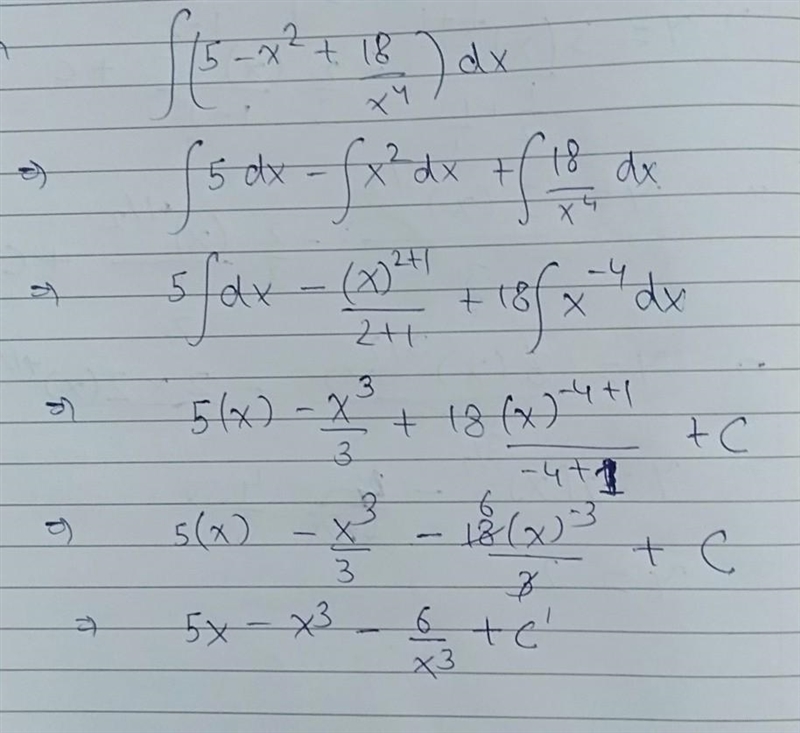 ∫(5 - x² + 18/x⁴) dx
⇒ ∫5 dx - ∫x² dx + ∫18/x⁴ dx
⇒ 5∫dx - (x)²⁺¹/2+1 + 18∫x⁻⁴ dx
⇒ 5(x) - x³/3 + 18 (x)⁻⁴⁺¹/-4+1 + C
⇒ 5(x) - x³/3 - 6 18(x)⁻³/3 + C
⇒ 5x - x³ - 6/x³ + C'